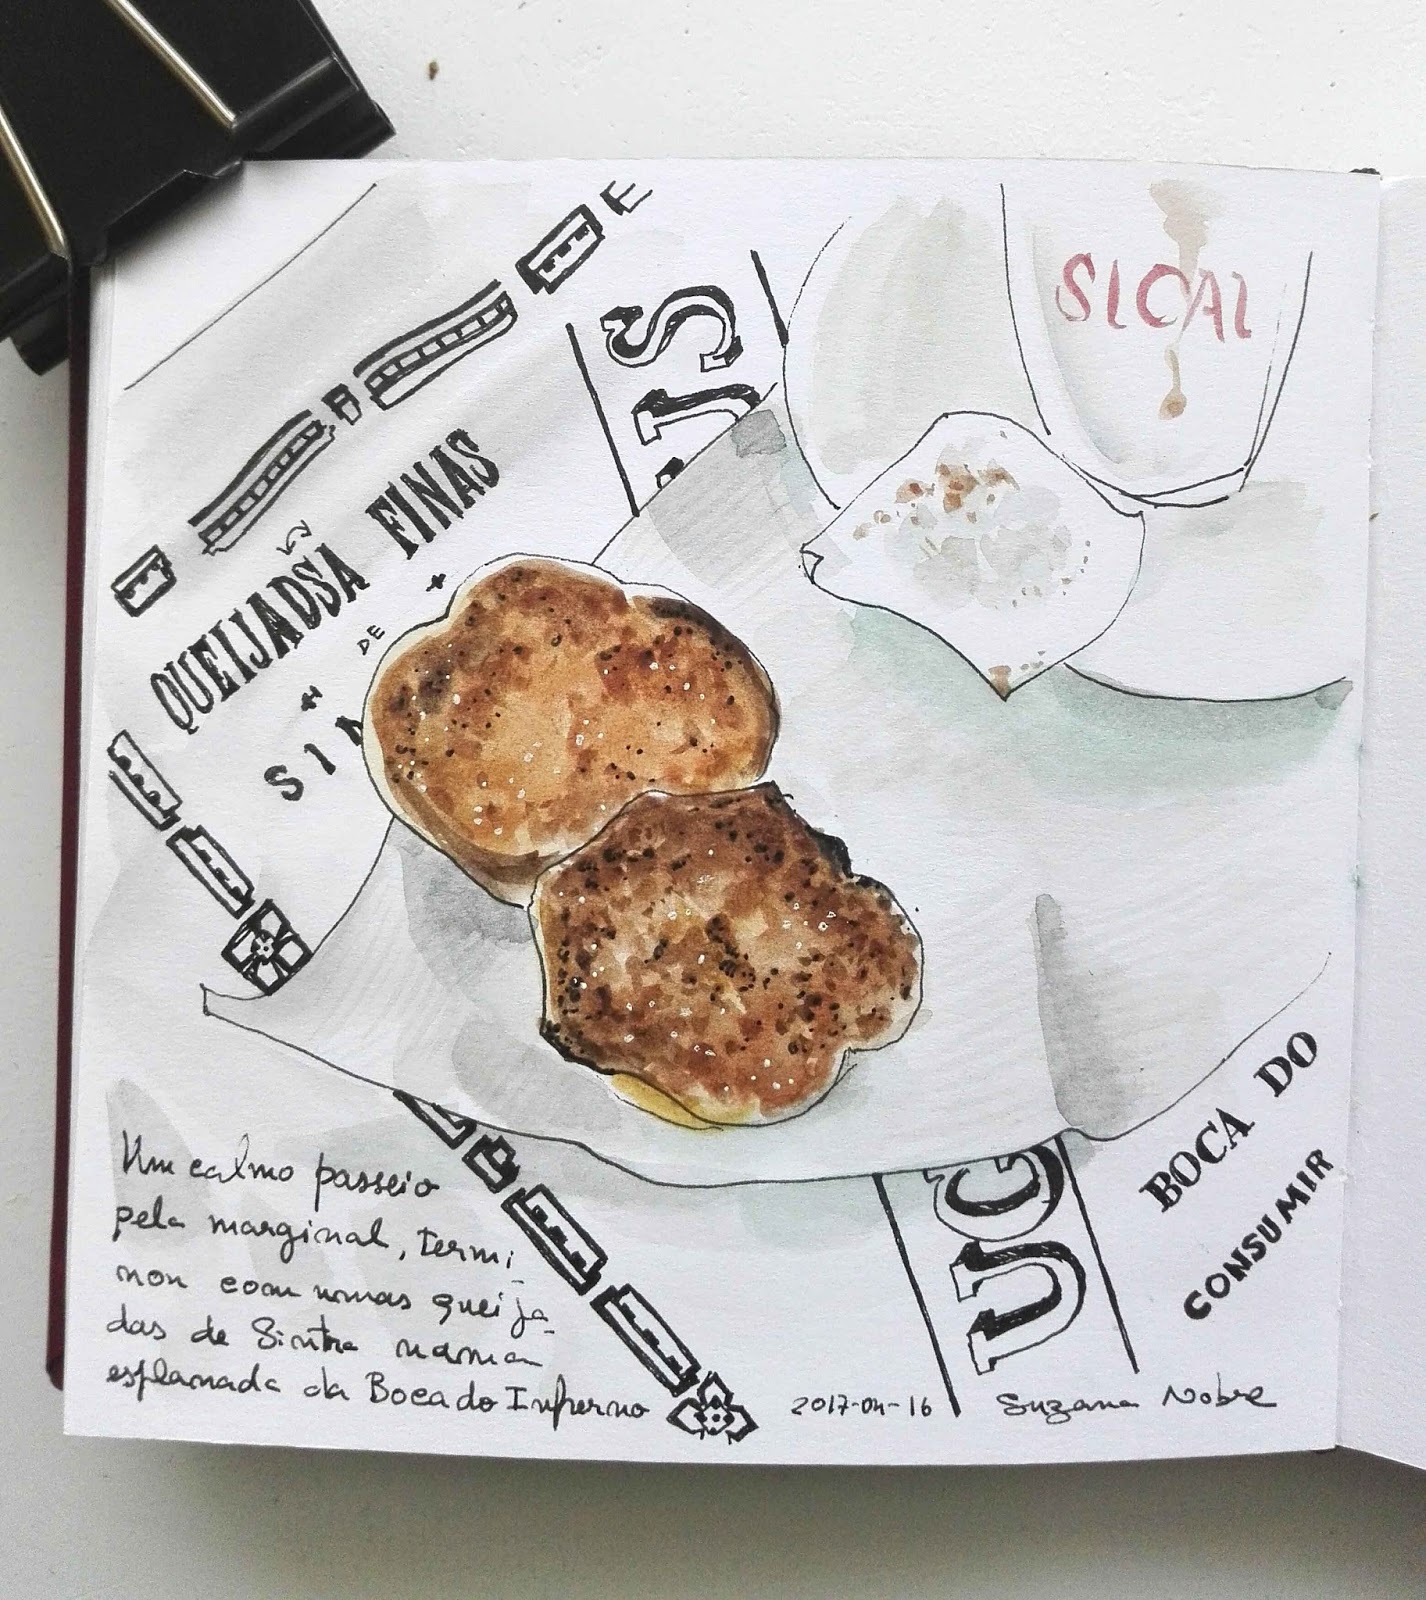 SICAL
QUEIJADSA FINAS
DE
SIN
BOCA DO
CONSUMIR
Um calmo passeio
pela marginal, termi-
nou com umas queija-
das de Sintra numa
esplanada da Boca do Inferno
2017-04-16
Suzana Nobre